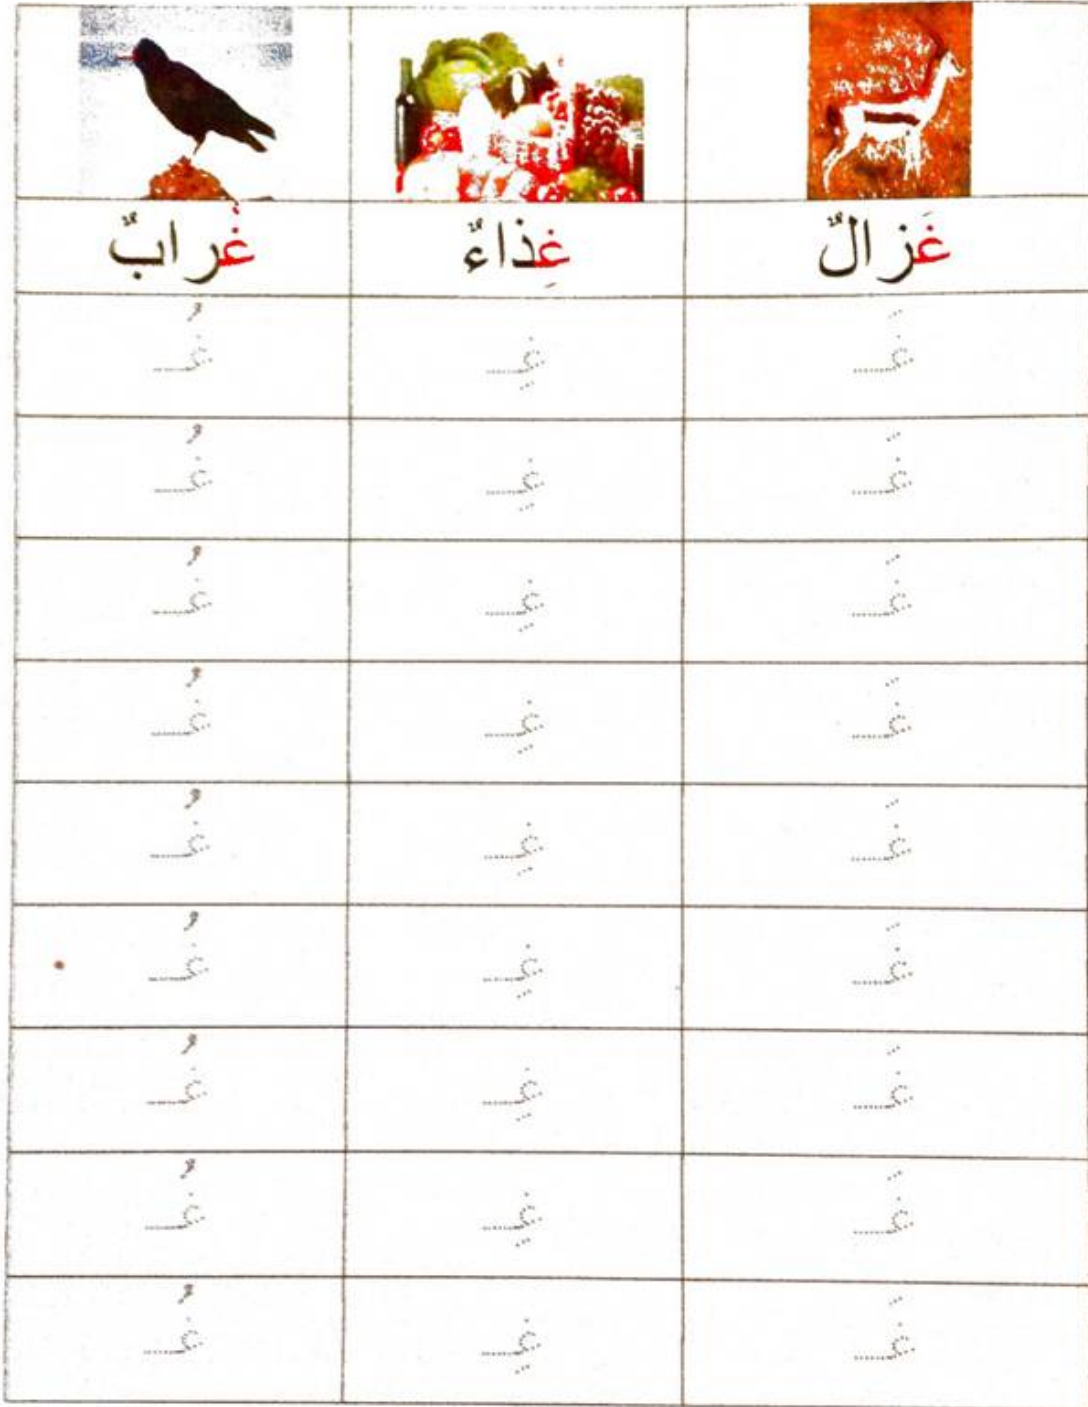 غَزالٌ غِذاءٌ غُرابٌ
غَـ غِـ غُـ
غَـ غِـ غُـ
غَـ غِـ غُـ
غَـ غِـ غُـ
غَـ غِـ غُـ
غَـ غِـ غُـ
غَـ غِـ غُـ
غَـ غِـ غُـ
غَـ غِـ غُـ